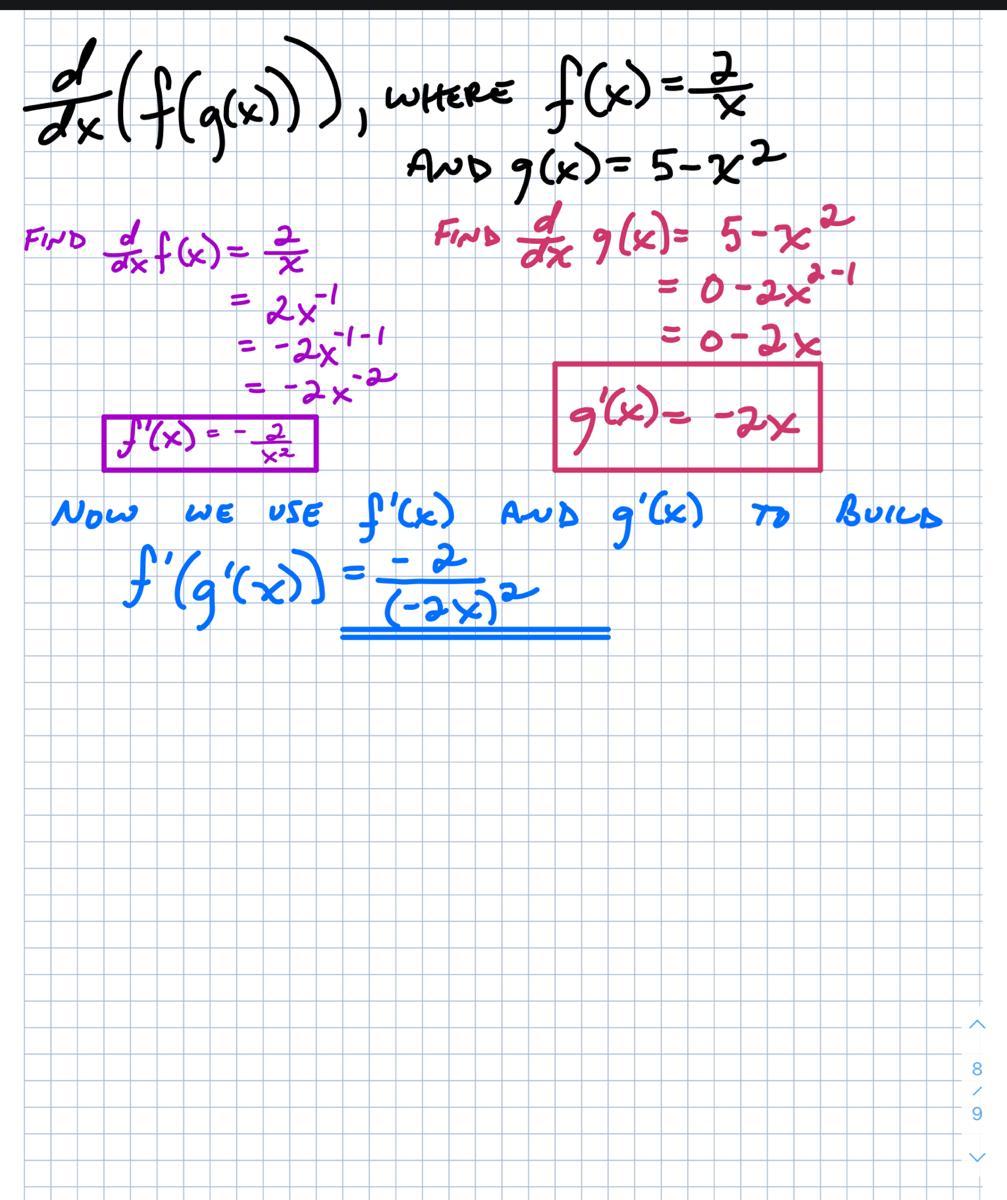 d/dx (f(g(x))), WHERE f(x) = 2/x
AND g(x) = 5 - x²
FIND d/dx f(x) = 2/x
= 2x⁻¹
= -2x⁻¹⁻¹
= -2x⁻²
f'(x) = - 2/x²
FIND d/dx g(x) = 5 - x²
= 0 - 2x²⁻¹
= 0 - 2x
g'(x) = -2x
NOW WE USE f'(x) AND g'(x) TO BUILD
f'(g'(x)) = -2/(-2x)²
8
/
9